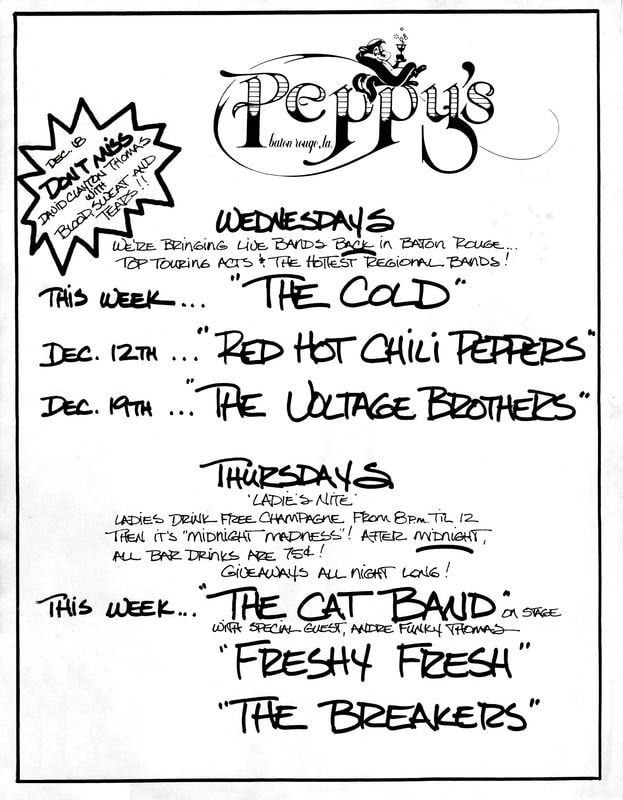 Peppy's
baton rouge, la.
DEC. 18
DON'T MISS
DAVID CLAYTON THOMAS
WITH
BLOOD, SWEAT AND
TEARS!!
WEDNESDAYS
WE'RE BRINGING LIVE BANDS BACK IN BATON ROUGE...
TOP TOURING ACTS & THE HOTTEST REGIONAL BANDS!
THIS WEEK... "THE COLD"
DEC. 12TH ... "RED HOT CHILI PEPPERS"
DEC. 19TH ... "THE VOLTAGE BROTHERS"
THURSDAYS
'LADIE'S NITE'
LADIES DRINK FREE CHAMPAGNE FROM 8PM TIL 12
THEN IT'S "MIDNIGHT MADNESS"! AFTER MIDNIGHT,
ALL BAR DRINKS ARE 75¢!
GIVEAWAYS ALL NIGHT LONG!
THIS WEEK... "THE CAT BAND" ON STAGE
WITH SPECIAL GUEST, ANDRE FUNKY THOMAS
"FRESHY FRESH"
"THE BREAKERS"